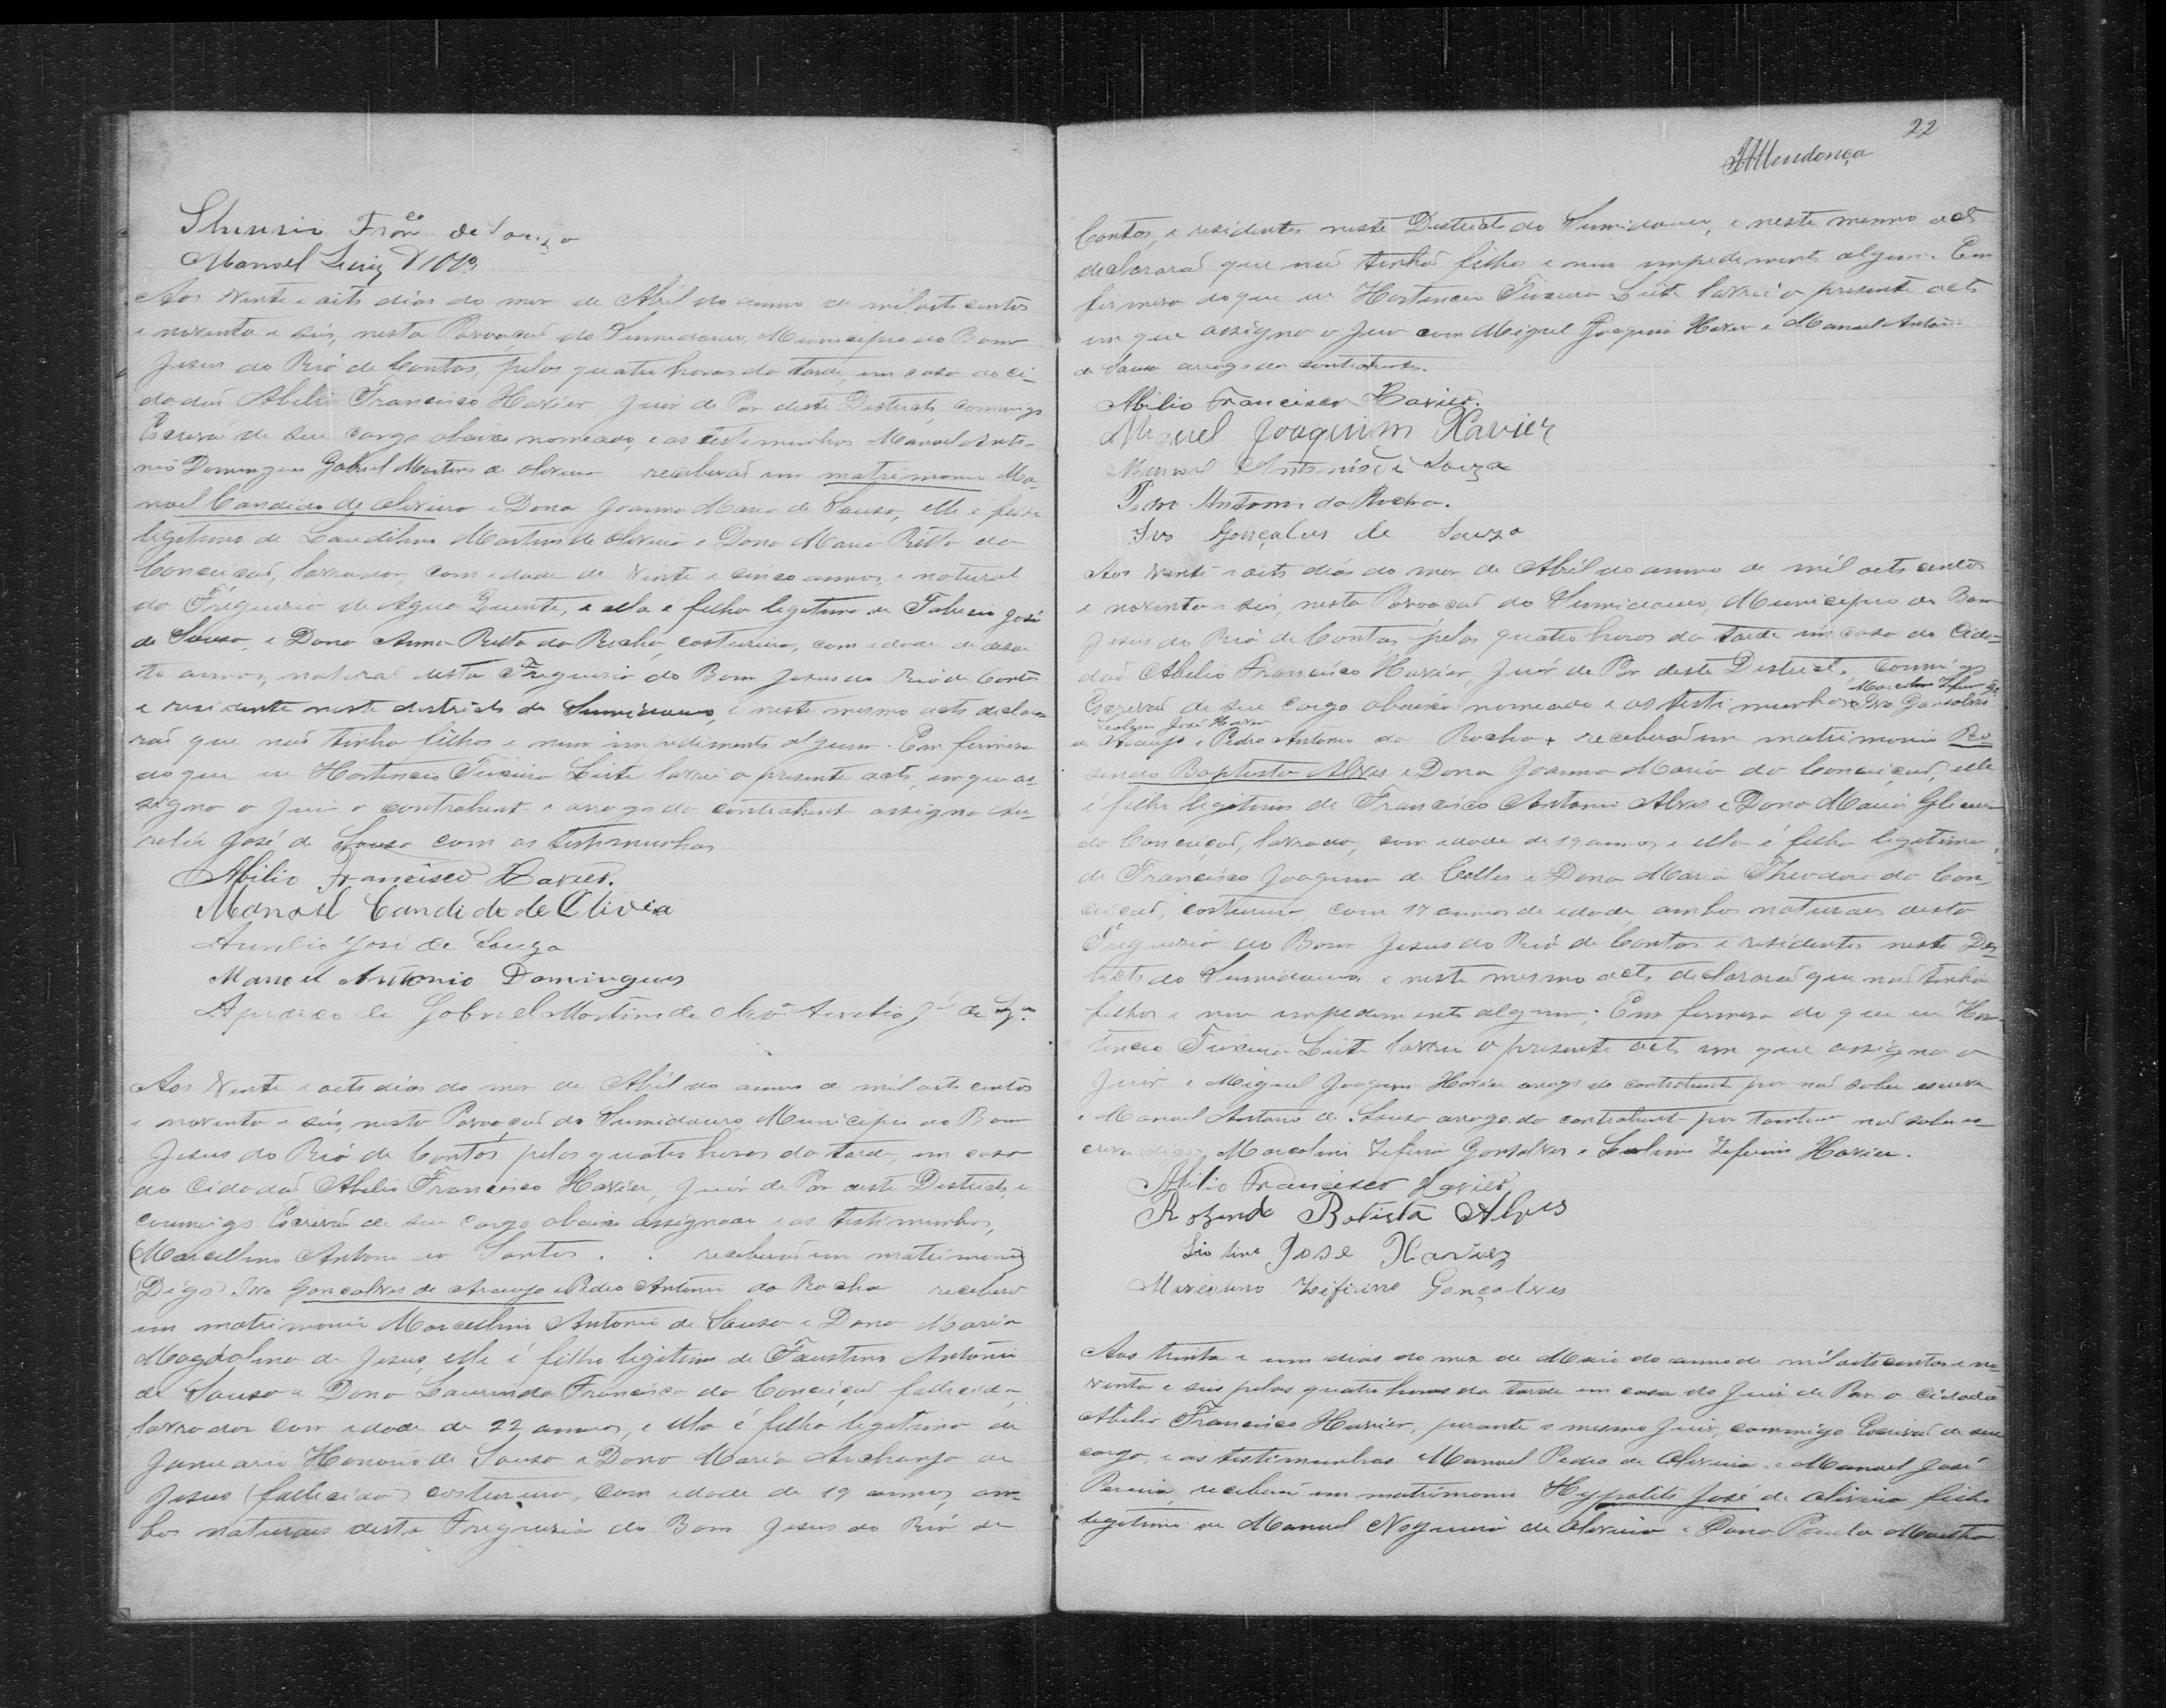 Franco de Souza
Manoel Luiz
Aos Vinte e oito dias do mez de Abril do anno de mil oito centos
e noventa e seis, nesta Povoação do Sumidouro, Municipio do Bom
Jesus do Rio de Contas, pelas quatro horas da tarde, em casa do Ci-
dadaõ Abilio Francisco Xavier, Juiz de Paz deste Districto, commigo
Escrivã de seu cargo abaixo nomeado, e as testimunhas Manoel Anto-
nio Domingues Gabriel Martins de Oliveira receberaõ em matrimonio Ma-
noel Candido de Oliveira e Dona Joanna Maria de Souza, elle é filho
legitimo de Laudilino Martins de Oliveira e Dona Maria Ritta da
Conceiçaõ, lavrador, com idade de Vinte e cinco annos, e natural
da Freguezia de Agua Quente, e ella é filha legitima de Fabricio José
de Souza, e Dona Anna Ritta da Rocha, costureira, com idade de deseі
to annos, natural desta Freguezia do Bom Jesus do Rio de Contas
e residente neste districto do Sumidouro, e neste mesmo acto declara
raõ que naõ tinha filhos e nem impedimento algum. Em firmeza
do que eu Hortencio Teixeira Leite lavrei o presente acto, em que as-
signa o Juiz o contrahente e arrogo da contrahente assigna Au-
relio José de Souza com as testimunhas
Abilio Francisco Xavier.
Manoel Candido de Olivia
Aurelio José de Souza
Manoel Antonio Domingues
A pedido de Gabriel Martins de Olivrª Aurelio Jé de Szª
Aos Vinte e oito dias do mez de Abril do anno de mil oito centos
e noventa e seis, nesta Povoaçaõ do Sumidouro Municipio do Bom
Jesus do Rio de Contas pelas quatro horas da tarde, em casa
do Cidadaõ Abilio Francisco Xavier, Juiz de Paz deste Districto, e
commigo Escrivã de seu cargo abaixo assignado e as testimunhas,
(Marcellino Antonio de Santos . . receberaõ em matrimonio)
(Digo) Ivo Gonçalves de Araujo e Pedro Antonio da Rocha recebero
em matrimonio Marcellino Antonio de Souza e Dona Maria
Magdalena de Jesus, elle é filho legitimo de Faustino Antonio
de Souza e Dona Laurinda Francisca da Conceiçaõ, fallecida,
lavrador com idade de 22 annos, e ella é filha legitima de
Januario Honorio de Souza e Dona Maria Archanja de
Jesus (fallecida) costureira, com idade de 19 annos, am-
bos naturaes desta Freguezia do Bom Jesus do Rio de
22
Mendonça
Contas, e residentes neste Districto do Sumidouro, e neste mesmo acto
declararaõ que naõ tinhaõ filhos e nem impedimento algum. Em
firmeza do que eu Hortencio Teixeira Leite lavrei o presente acto
em que assigna o Juiz com Miguel Joaquim Xavier e Manoel Antonio
de Souza arrogo dos contrahentes.
Abilio Francisco Xavier.
Miguel Joaquim Xavier
Manoel Antonio de Souza
Pedro Antonio da Rocha.
Ivo Gonçalves de Souza
Aos Vinte e oito dias do mez de Abril do anno de mil oito centos
e noventa e seis, nesta Povoaçaõ do Sumidouro, Municipio do Bom
Jesus do Rio de Contas pelas quatro horas da tarde em casa do Cida-
daõ Abelio Francisco Xavier, Juiz de Paz deste Districto, commigo
Escrivã de seu cargo abaixo nomeado e as testimunhas Ivo Gonsalves
Leolino José Xavier
de Araujo e Pedro Antonio da Rocha + receberaõ em matrimonio Ro-
sendo Baptista Alves e Dona Joanna Maria da Conceiçaõ, elle
é filho legitimo de Francisco Antonio Alves e Dona Maria
da Conceiçaõ, lavrador, com idade de 19 annos e ella é filha legitima
de Francisco Joaquim de Celles e Dona Maria Theodora da Con-
ceiçaõ, costureira, com 17 annos de idade, ambos naturaes desta
Freguezia do Bom Jesus do Rio de Contas e residentes neste Des-
tricto do Sumidouro e neste mesmo acto declararaõ que naõ tinha
filhos e nem impedimento algum; Em firmeza do que eu Hor-
tencio Teixeira Leite lavrei o presente acto em que assigna o
Juiz e Miguel Joaquim Xavier arrogo do contrahente por naõ saber escrever
e Manoel Antonio de Souza arrogo da contrahente por tambem naõ saber es-
crever digo Marcolino Zeferino Gonsalves e Leolino Zeferino Xavier.
Abilio Francisco Xavier
Rozendo Batista Alves
Liolino José Xavier
Marcolino Zifirino Gonçalves
Aos trinta e um dias do mez de Maio do anno de mil oito centos e no-
venta e seis pelas quatro horas da tarde em casa do Juiz de Paz o Cidadaõ
Abilio Francisco Xavier, perante o mesmo Juiz, commigo Escrivaõ de seu
cargo, e as testimunhas Manoel Pedro de Oliveira e Manoel José
Pereira, receberaõ em matrimonio Hyppolito José de Oliveira filho
legitimo de Manoel Nogueira de Oliveira e Dona Paula Martha